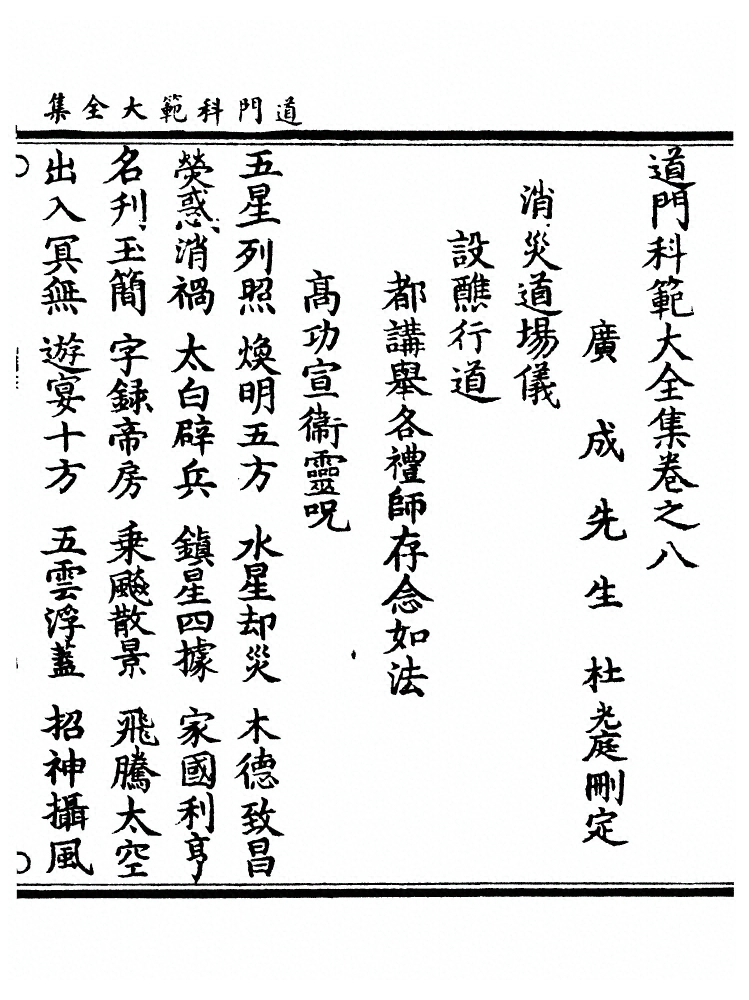 道門科範大全集
道門科範大全集卷之八
廣成先生杜光庭刪定
消災道場儀
設醮行道
都講舉各禮師存念如法
高功宣衞靈呪
五星列照 煥明五方 水星却災 木德致昌
熒惑消禍 太白辟兵 鎮星四據 家國利亨
名刋玉簡 字錄帝房 乗飈散景 飛騰太空
出入冥無 遊宴十方 五雲浮蓋 招神攝風